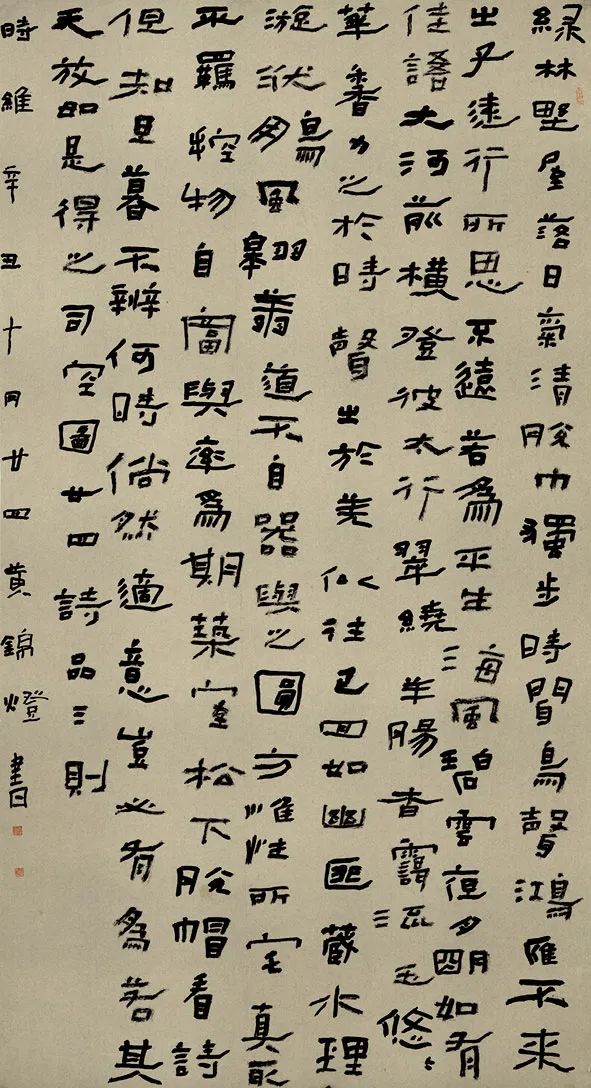 綠林野屋落日氣清脫巾獨步時聞鳥聲鴻雁不來
之子遠行所思不遠若為平生海風碧雲夜月明如有
佳語大河前橫登彼太行翠繞羊腸杳靄流玉悠悠
華香力之於時聲之於羌似往已回如幽匪藏水理
漩洑鵬風翱翔道不自器與之圓方惟性所宅真取
不羈控物自富與率為期築室松下脫帽看詩
但知旦暮不辨何時倘然適意豈必有為若其
天放如是得之司空圖廿四詩品三則
時維辛丑十月廿四黃錦燈書